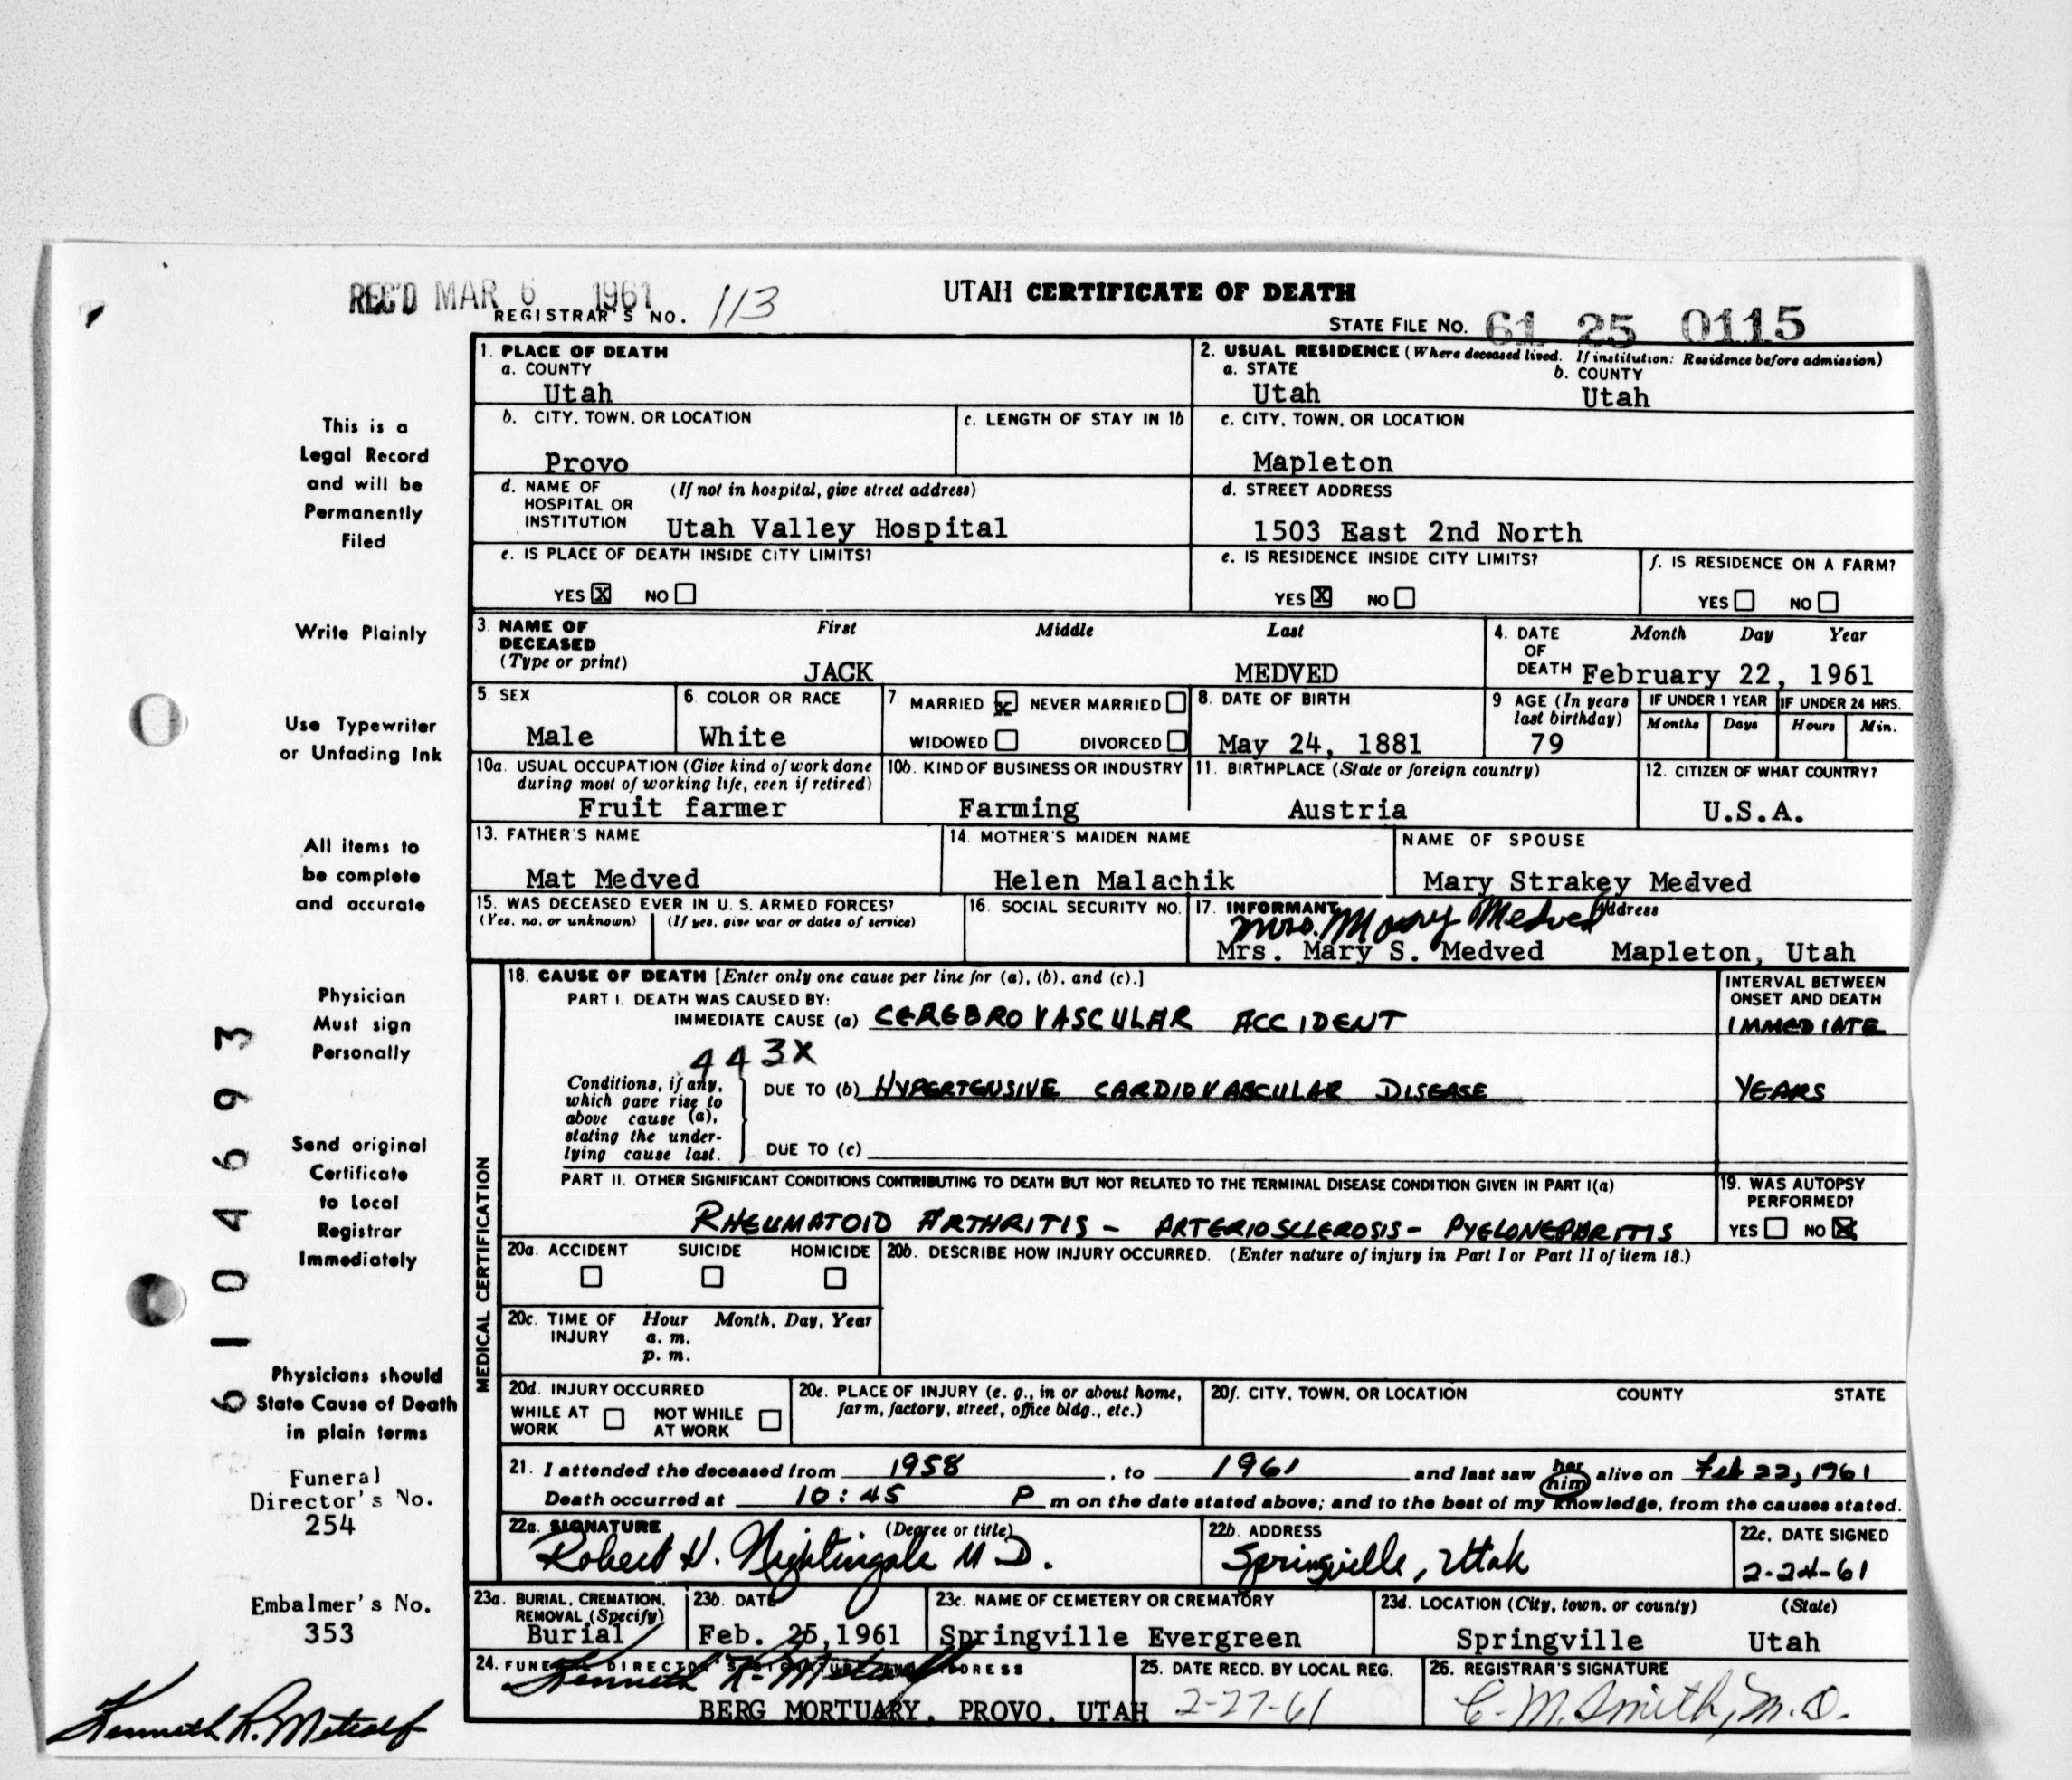 REC'D MAR 6 1961
REGISTRAR'S NO. 113
UTAH CERTIFICATE OF DEATH
STATE FILE NO. 61 25 0115
1. PLACE OF DEATH
a. COUNTY
Utah
2. USUAL RESIDENCE (Where deceased lived. If institution: Residence before admission)
a. STATE
Utah
b. COUNTY
Utah
b. CITY, TOWN, OR LOCATION
Provo
c. LENGTH OF STAY IN 1b
c. CITY, TOWN, OR LOCATION
Mapleton
d. NAME OF HOSPITAL OR INSTITUTION
(If not in hospital, give street address)
Utah Valley Hospital
d. STREET ADDRESS
1503 East 2nd North
e. IS PLACE OF DEATH INSIDE CITY LIMITS?
YES X NO
e. IS RESIDENCE INSIDE CITY LIMITS?
YES X NO
f. IS RESIDENCE ON A FARM?
YES NO
3. NAME OF DECEASED
(Type or print)
First Middle Last
JACK MEDVED
4. DATE OF DEATH
Month Day Year
February 22, 1961
5. SEX
Male
6 COLOR OR RACE
White
7 MARRIED X NEVER MARRIED
WIDOWED DIVORCED
8. DATE OF BIRTH
May 24, 1881
9 AGE (In years last birthday)
79
IF UNDER 1 YEAR
Months Days
IF UNDER 24 HRS.
Hours Min.
10a. USUAL OCCUPATION (Give kind of work done during most of working life, even if retired)
Fruit farmer
10b. KIND OF BUSINESS OR INDUSTRY
Farming
11. BIRTHPLACE (State or foreign country)
Austria
12. CITIZEN OF WHAT COUNTRY?
U.S.A.
13. FATHER'S NAME
Mat Medved
14. MOTHER'S MAIDEN NAME
Helen Malachik
NAME OF SPOUSE
Mary Strakey Medved
15. WAS DECEASED EVER IN U. S. ARMED FORCES?
(Yes, no, or unknown) (If yes, give war or dates of service)
16. SOCIAL SECURITY NO.
17. INFORMANT Address
Mrs. Mary Medved
Mrs. Mary S. Medved Mapleton, Utah
MEDICAL CERTIFICATION
18. CAUSE OF DEATH [Enter only one cause per line for (a), (b), and (c).]
PART I. DEATH WAS CAUSED BY:
IMMEDIATE CAUSE (a) CEREBRO VASCULAR ACCIDENT
INTERVAL BETWEEN ONSET AND DEATH
IMMEDIATE
443X
Conditions, if any, which gave rise to above cause (a), stating the underlying cause last.
DUE TO (b) HYPERTENSIVE CARDIOVASCULAR DISEASE
YEARS
DUE TO (c)
PART II. OTHER SIGNIFICANT CONDITIONS CONTRIBUTING TO DEATH BUT NOT RELATED TO THE TERMINAL DISEASE CONDITION GIVEN IN PART I(a)
RHEUMATOID ARTHRITIS - ARTERIOSCLEROSIS - PYELONEPHRITIS
19. WAS AUTOPSY PERFORMED?
YES NO X
20a. ACCIDENT SUICIDE HOMICIDE
20b. DESCRIBE HOW INJURY OCCURRED. (Enter nature of injury in Part I or Part II of item 18.)
20c. TIME OF INJURY
Hour Month, Day, Year
a. m.
p. m.
20d. INJURY OCCURRED
WHILE AT WORK NOT WHILE AT WORK
20e. PLACE OF INJURY (e. g., in or about home, farm, factory, street, office bldg., etc.)
20f. CITY, TOWN, OR LOCATION COUNTY STATE
21. I attended the deceased from 1958, to 1961 and last saw her him alive on Feb 22, 1961
Death occurred at 10:45 P m on the date stated above; and to the best of my knowledge, from the causes stated.
22a. SIGNATURE (Degree or title)
Robert H. Nightingale M D.
22b. ADDRESS
Springville, Utah
22c. DATE SIGNED
2-24-61
23a. BURIAL, CREMATION, REMOVAL (Specify)
Burial
23b. DATE
Feb. 25,1961
23c. NAME OF CEMETERY OR CREMATORY
Springville Evergreen
23d. LOCATION (City, town, or county) (State)
Springville Utah
24. FUNERAL DIRECTOR'S SIGNATURE ADDRESS
Kenneth R. Metcalf
BERG MORTUARY, PROVO, UTAH
25. DATE RECD. BY LOCAL REG.
2-27-61
26. REGISTRAR'S SIGNATURE
C. M. Smith, M.D.
This is a
Legal Record
and will be
Permanently
Filed
Write Plainly
Use Typewriter
or Unfading Ink
All items to
be complete
and accurate
Physician
Must sign
Personally
Send original
Certificate
to Local
Registrar
Immediately
Physicians should
State Cause of Death
in plain terms
Funeral
Director's No.
254
Embalmer's No.
353
Kenneth R. Metcalf
6104693